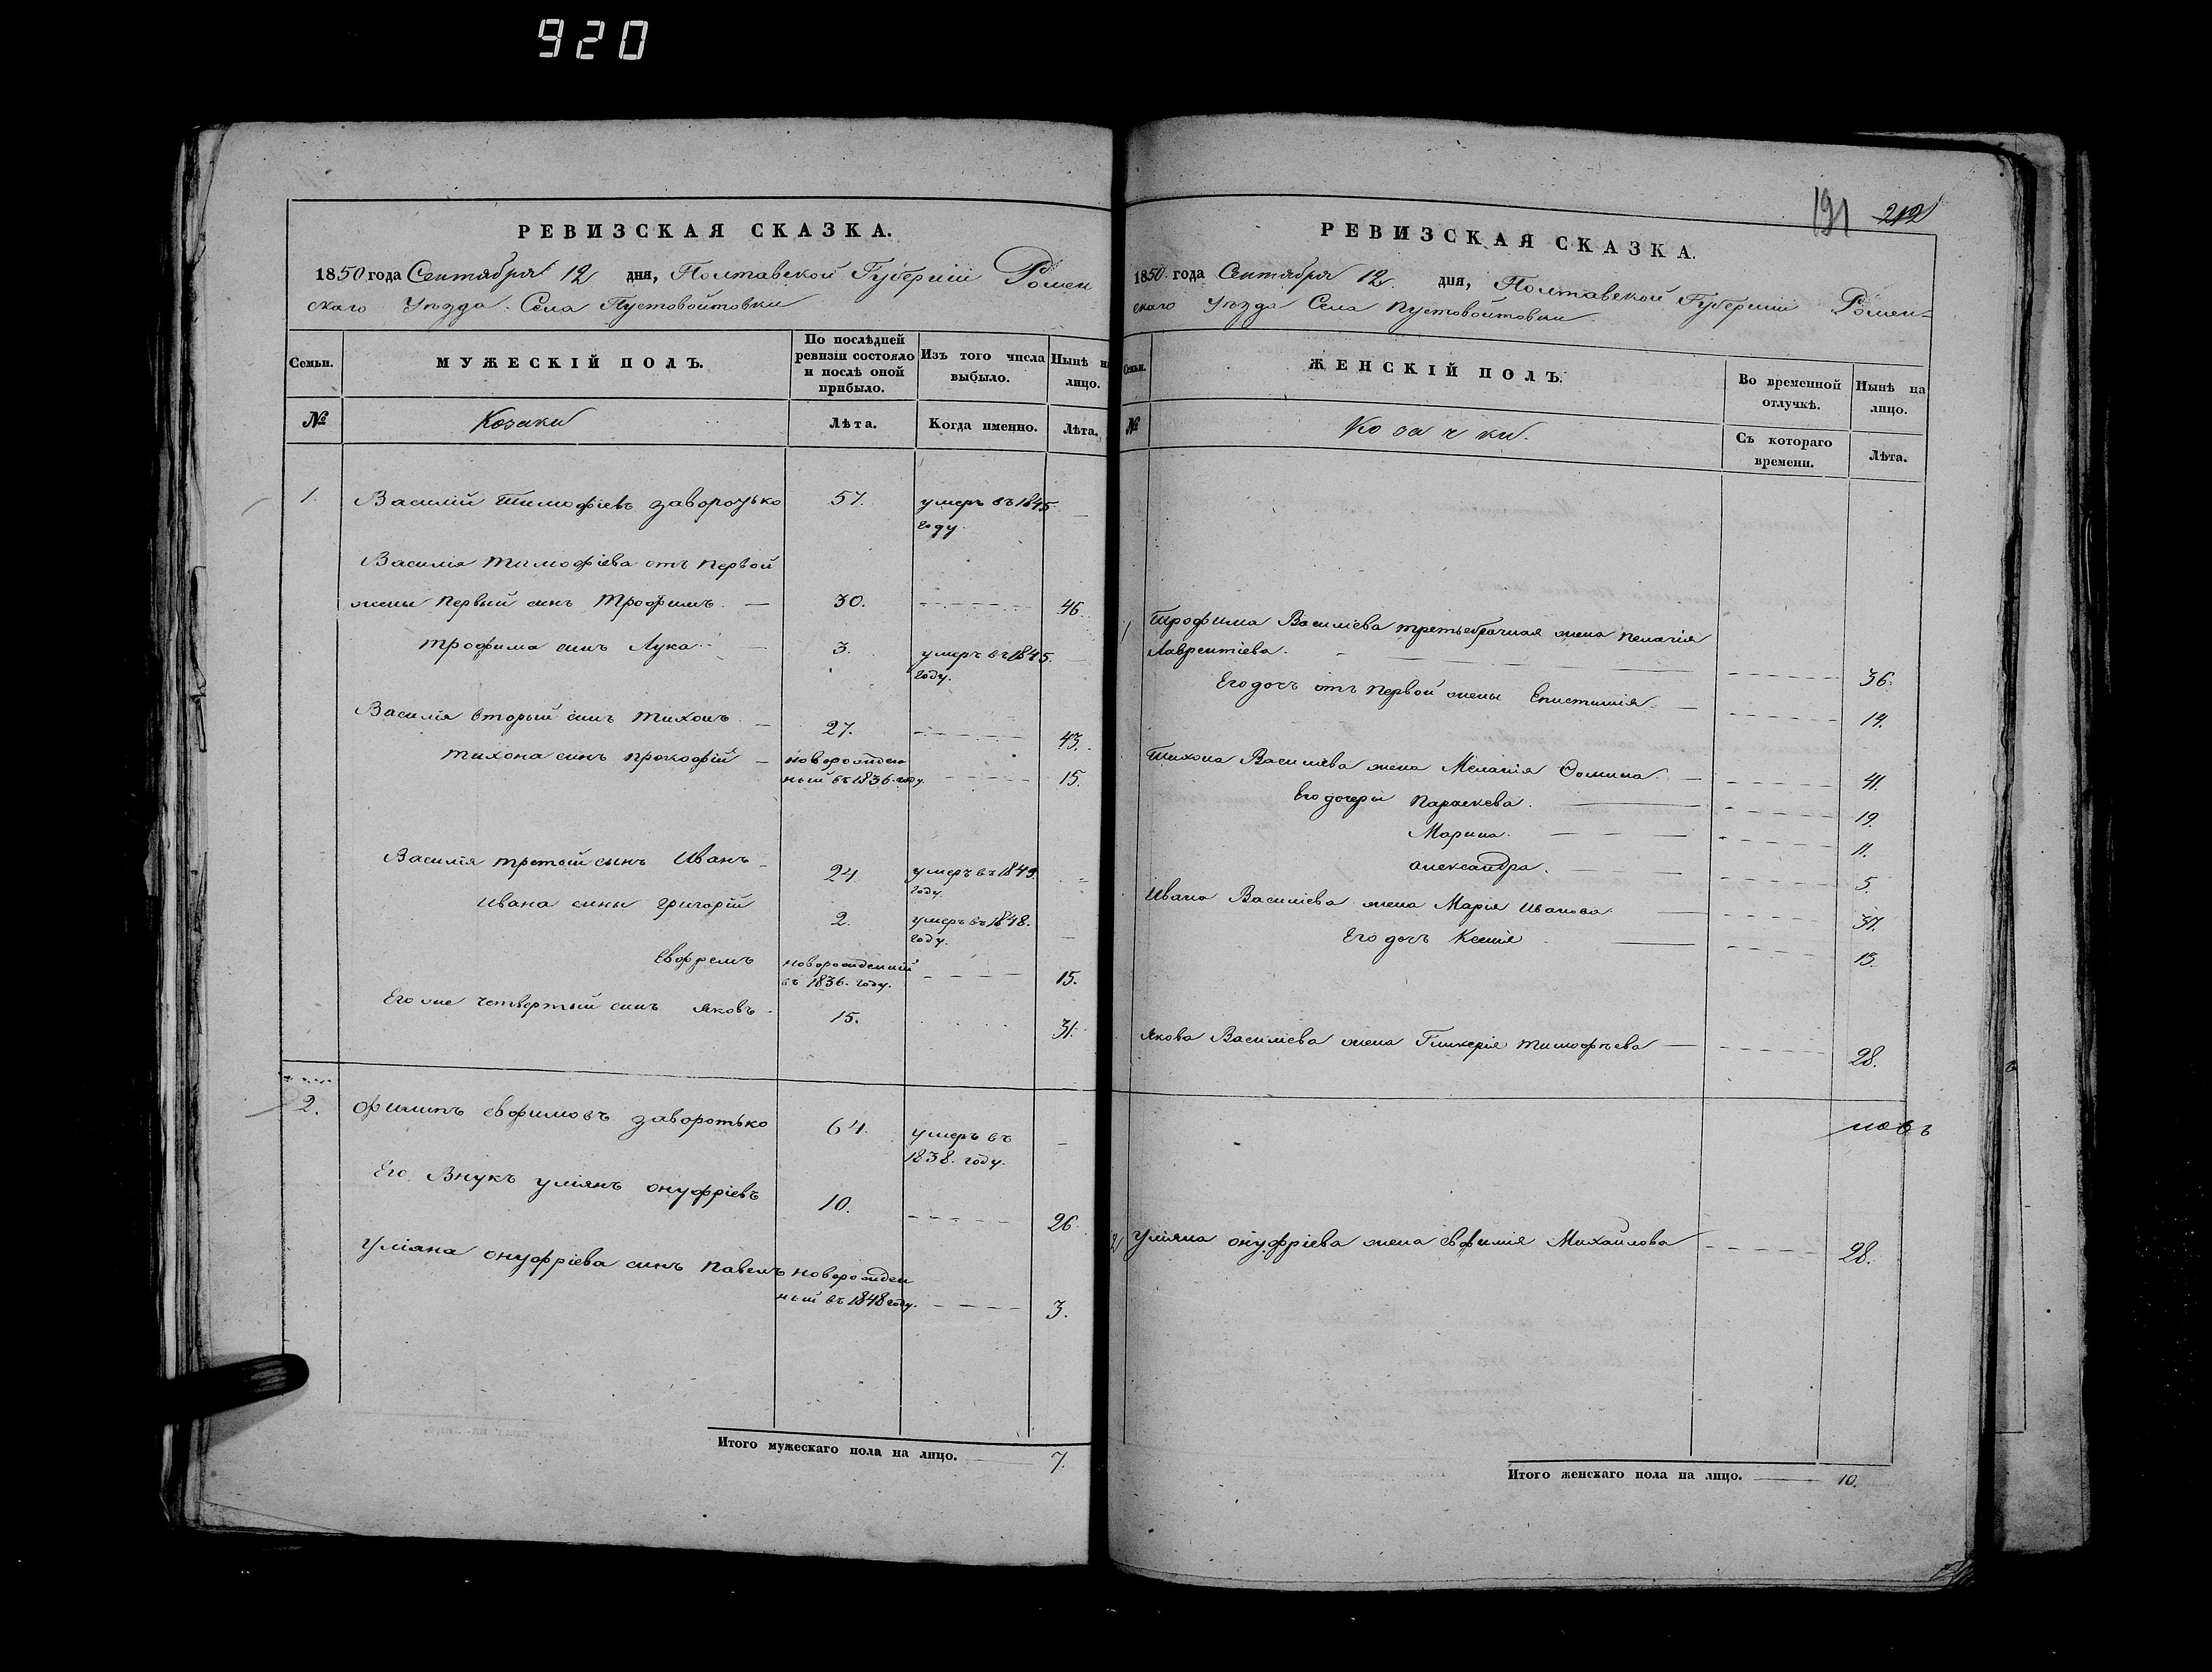 920
РЕВИЗСКАЯ СКАЗКА.
1850 года Сентября 12 дня, Полтавской Губерніи Ромен
скаго Уѣзда Села Пустовойтовки
Семьи.
МУЖЕСКІЙ ПОЛЪ.
По послѣдней ревизіи состояло и послѣ оной прибыло.
Изъ того числа выбыло.
Нынѣ на лицо.
№
Козаки
Лѣта.
Когда именно.
Лѣта.
1. Василій Тимофіевъ Заворотько 57. умеръ въ 1845 году. —
Василія Тимофіева отъ первой
жены первый синъ Трофимъ. — 30. 46.
Трофима синъ Лука — 3. умеръ въ 1845. году.
Василія вторый синъ Тихонъ — 27. 43.
Тихона синъ Прокофій — новорожден
ный въ 1836. году 15.
Василія третій сынъ Иванъ 24 умеръ въ 1849. году.
Ивана сины Григорій 2. умеръ въ 1848. году. —
Евфремъ новорожденній
въ 1836. году. 15.
Его же четвертый синъ Яковъ 15. 31.
2. Филипъ Евфимовъ Заворотько 64. умеръ въ
1838. году. —
Его Внукъ Уліянъ Онуфріевъ 10. 26.
Уліяна Онуфріева синъ Павелъ новорожден
ный въ 1848 году. 3.
Итого мужескаго пола на лицо. 7.
191 212
РЕВИЗСКАЯ СКАЗКА.
1850 года Сентября 12. дня, Полтавской Губерніи Ромен-
скаго Уѣзда Села Пустовойтовки
Семьи.
ЖЕНСКІЙ ПОЛЪ.
Во временной отлучкѣ.
Нынѣ на лицо.
№
Козачки.
Съ котораго времени.
Лѣта.
1 Трофима Василіева третьебрачная жена Пелагія
Лаврентіева. 36.
Его дочъ отъ первой жены Епистимія. — 19.
Тихона Василіева жена Меланія Фомина. — 41.
Его дочери Параскева. 19.
Марина. 11.
Александра. 5.
Ивана Василіева жена Марія Иванова. 37.
Его дочъ Ксенія 13.
Якова Василіева жена Гликерія Тимофѣева — 28.
2 Уліяна Онуфріева жена Евфимія Михайлова 28.
Итого женскаго пола на лицо. 10.